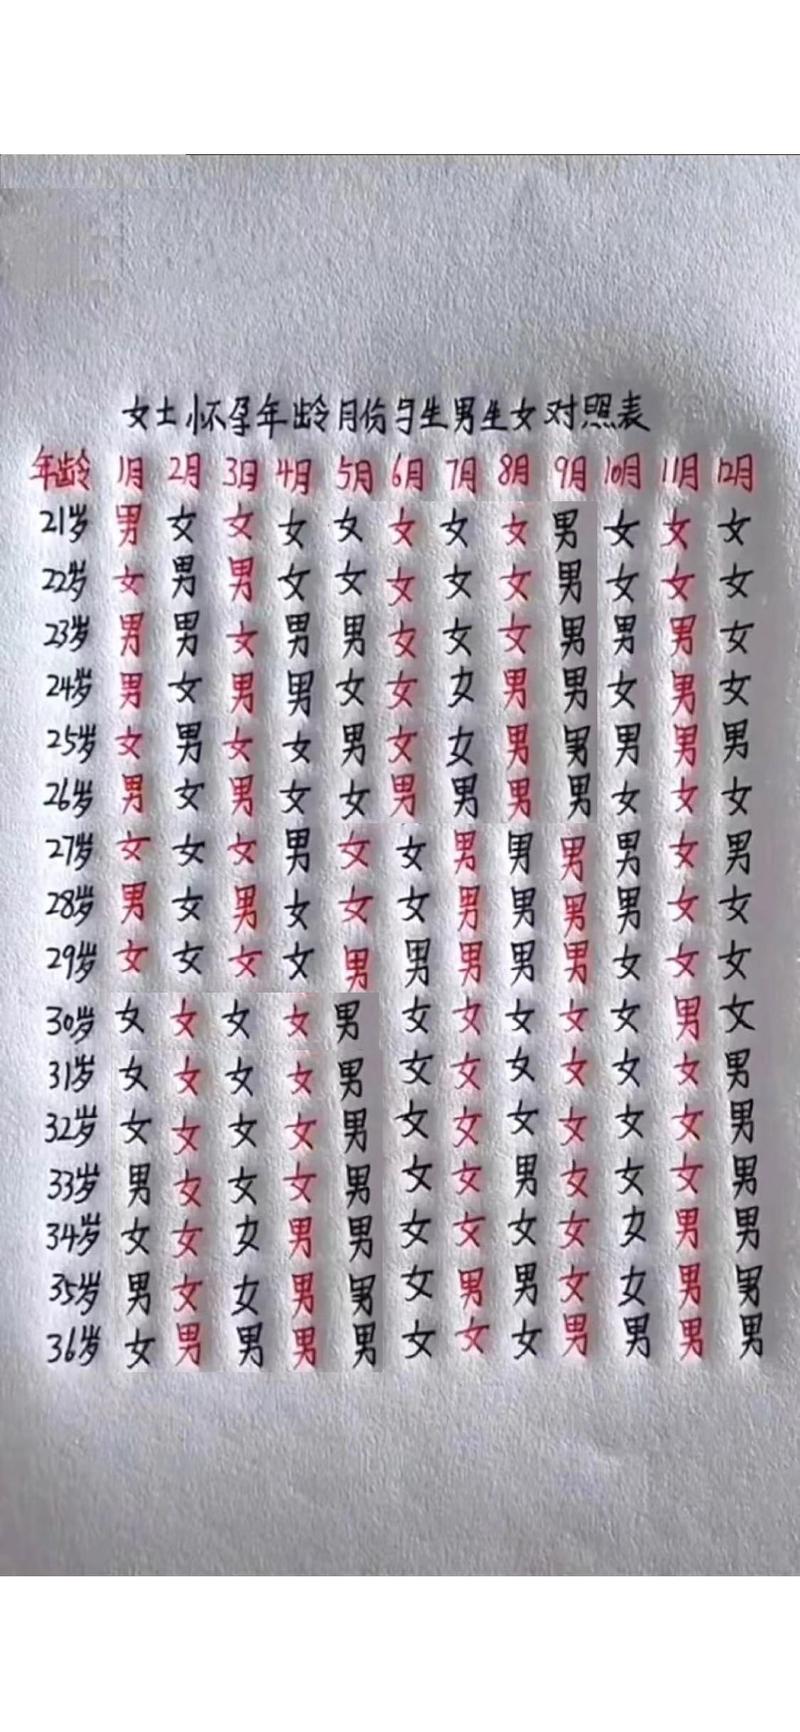 女士怀孕年龄月份与生男生女对照表
年龄 1月 2月 3日 4月 5月 6月 7月 8月 9月 10月 11月 12月
21岁 男 女 女 女 女 女 女 女 男 女 女 女
22岁 女 男 男 女 女 女 女 女 男 女 女 女
23岁 男 男 女 男 男 女 女 女 男 男 男 女
24岁 男 女 男 男 女 女 女 男 男 女 男 女
25岁 女 男 女 女 男 女 女 男 男 男 男 男
26岁 男 女 男 女 女 男 男 男 男 女 女 女
27岁 女 女 女 男 女 女 男 男 男 男 女 男
28岁 男 女 男 女 女 女 男 男 男 男 女 女
29岁 女 女 女 女 男 男 男 男 男 女 女 女
30岁 女 女 女 女 男 女 女 女 女 女 男 女
31岁 女 女 女 女 男 女 女 女 女 女 女 男
32岁 女 女 女 女 男 女 女 女 女 女 女 男
33岁 男 女 女 女 男 女 女 男 女 女 女 男
34岁 女 女 女 男 男 女 女 女 女 女 男 男
35岁 男 女 女 男 男 女 男 男 女 女 男 男
36岁 女 男 男 男 男 女 女 女 男 男 男 男